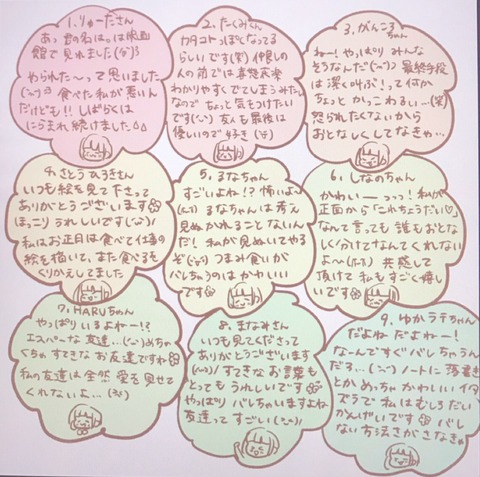 1. りゅーたさん
あっ 君の名は。は映画
館で見れました
やられた〜って思いました
食べた私が悪いん
だけども!! しばらくは
にらまれ続けました
2. たくみさん
カタコトっぽくなってる
らしいです(笑) 仲良しの
人の前では喜怒哀楽
わかりやすくでてしまうみたい
なので ちょっと気をつけたい
です 友人も最後は
優しいので好き
3. がんころちゃん
ねー! やっぱり みんな
そうなんだ 最終手段
は潔く叫ぶ! って何か
ちょっと かっこわるい…(笑)
怒られたくないから
おとなしくしてなきゃ…
4. さとうひろきさん
いつも絵を見て下さって
ありがとうございます
ほっこり うれしいです
私はお正月は食べて仕事の
絵を描いて、また食べるを
くりかえしてました
5. るなちゃん
すごいよね!? 怖いよ〜
るなちゃんは考え
見ぬかれることないん
だ! 私が見ぬいてやる
ぞ つまみ食いが
バレちゃうのは かわいい
です
6. しなのちゃん
かわいいーっっ! 私が
正面から「これちょうだい♡」
なんて言っても 誰もおとな
しく分けてなんてくれない
よ〜 共感して
頂けて 私もすごく嬉し
いです
7. HARUちゃん
やっぱり いるよねー!?
エスパーな友達… めちゃ
くちゃ すてきな お友達ですね
私の友達は全然 愛を見せて
くれないよ…
8. まなみさん
いつも見てくださって
ありがとうございます
すてきな お言葉も
とっても うれしいです
やっぱり バレちゃいますよね
友達って すごい
9. ゆかラテちゃん
だよね だよねー!
なんですぐ バレちゃうん
だろ… ノートに 落書き
とか めっちゃ かわいい イタ
ズラで 私はむしろ だい
かんげいです バレ
ない方法さがさなきゃ